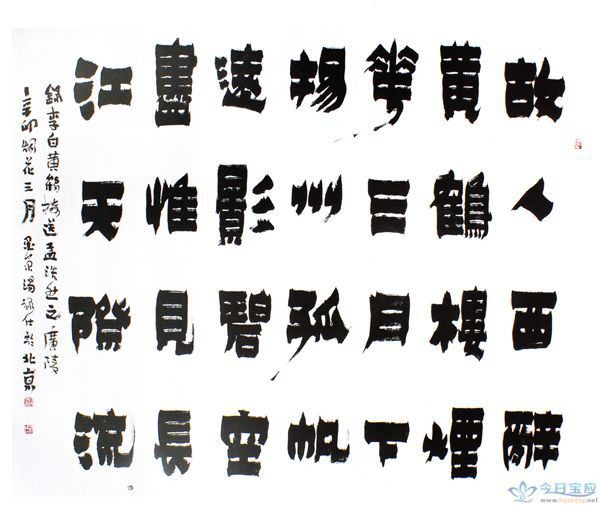 故人西辭
黃鶴樓煙
華三月下
揚州孤帆
遠影碧空
盡惟見長
江天際流
錄李白黃鶴樓送孟浩然之廣陵
辛卯烟花三月 於北京
今日宝应
www.bytoday.net